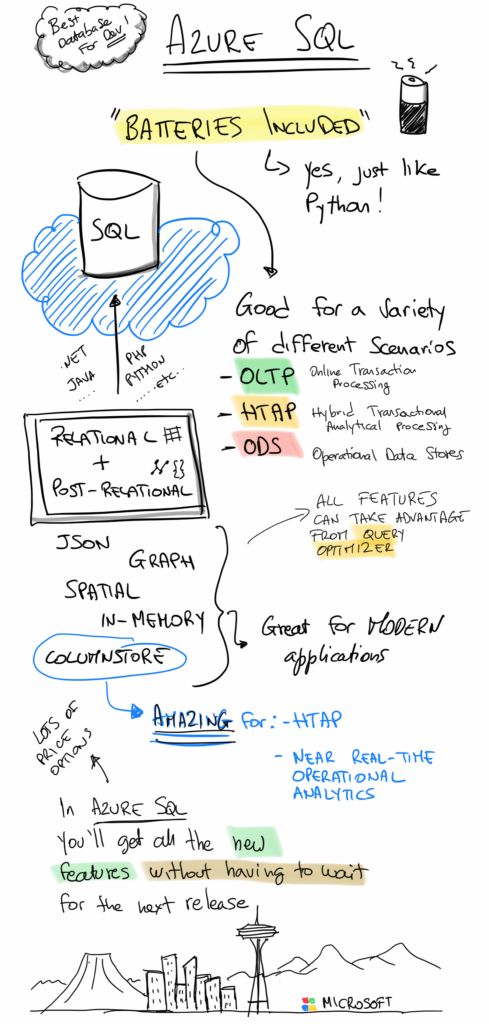 Best
Database
For Dev!
AZURE SQL
"BATTERIES INCLUDED"
yes, just like
Python!
SQL
.NET
JAVA
.....
PHP
PYTHON
.....etc...
Good for a variety
of different scenarios
- OLTP Online Transaction
Processing
- HTAP Hybrid Transactional
Analytical Processing
- ODS Operational Data Stores
RELATIONAL
+
POST-RELATIONAL
{}
ALL FEATURES
CAN TAKE ADVANTAGE
FROM QUERY
OPTIMIZER
JSON
GRAPH
SPATIAL
IN-MEMORY
COLUMNSTORE
Great for MODERN
applications
AMAZING FOR: - HTAP
- NEAR REAL-TIME
OPERATIONAL
ANALYTICS
LOTS OF
PRICE
OPTIONS
In AZURE SQL
you'll get all the new
features without having to wait
for the next release
MICROSOFT